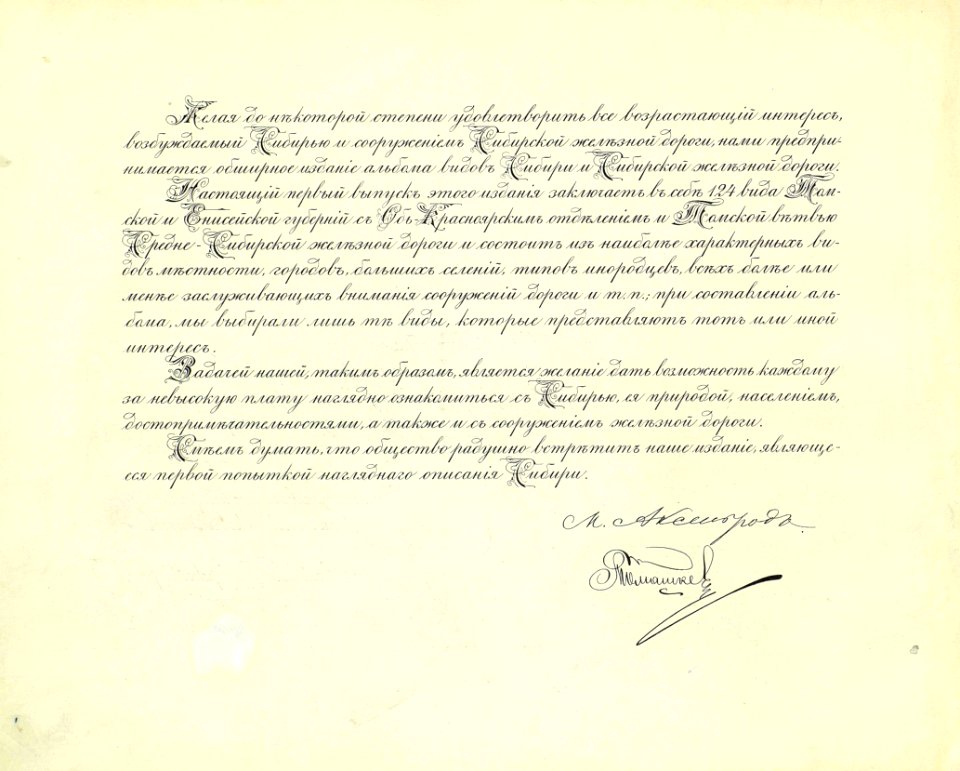 Желая до нѣкоторой степени удовлетворить все возрастающій интересъ,
возбуждаемый Сибирью и сооруженіемъ Сибирской желѣзной дороги, нами предпри-
нимается обширное изданіе альбома видовъ Сибири и Сибирской желѣзной дороги.
Настоящій первый выпускъ этого изданія заключаетъ въ себѣ 124 вида Том-
ской и Енисейской губерній съ Объ-Красноярскимъ отдѣленіемъ и Томской вѣтвью
Средне-Сибирской желѣзной дороги и состоитъ изъ наиболѣе характерныхъ ви-
довъ мѣстности, городовъ, большихъ селеній, типовъ инородцевъ, всѣхъ болѣе или
менѣе заслуживающихъ вниманія сооруженій дороги и т.п.; при составленіи аль-
бома, мы выбирали лишь тѣ виды, которые представляютъ тотъ или иной
интересъ.
Задачей нашей, такимъ образомъ, является желаніе дать возможность каждому
за невысокую плату наглядно ознакомиться съ Сибирью, ея природой, населеніемъ,
достопримѣчательностями, а также и съ сооруженіемъ желѣзной дороги.
Смѣемъ думать, что общество радушно встрѣтитъ наше изданіе, являюще-
еся первой попыткой нагляднаго описанія Сибири.
М. Аксельродъ.
Томашкев